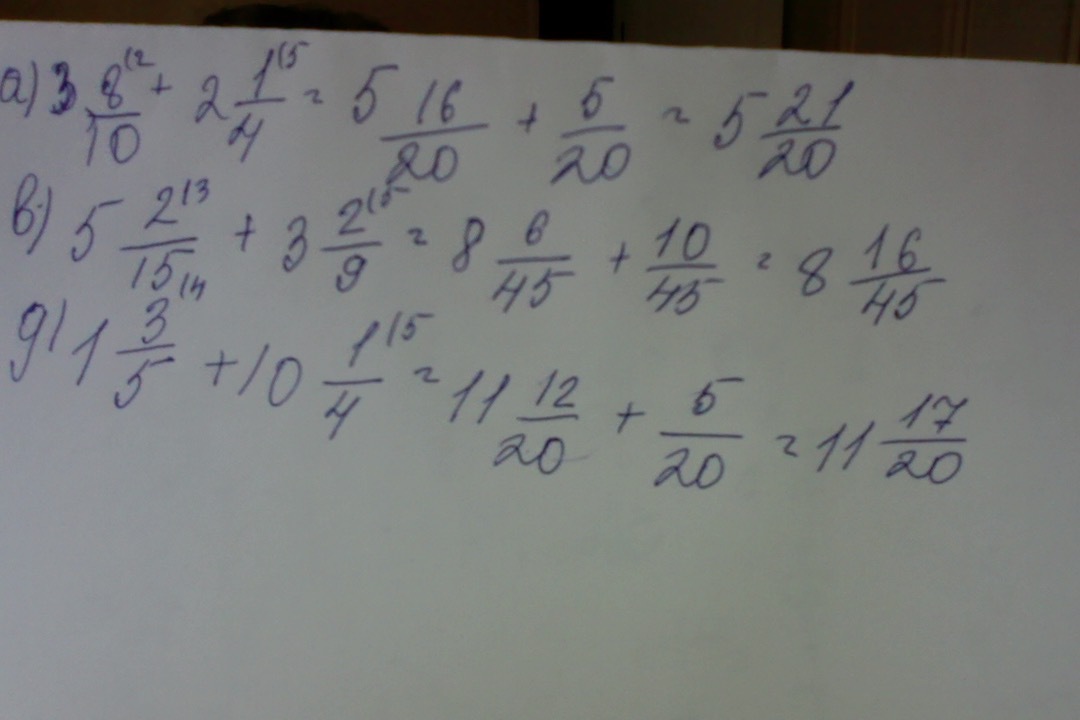 а) 3 8/10 (2 + 2 1/4 (5 = 5 16/20 + 5/20 = 5 21/20
в) 5 2/15 (3 + 3 2/9 (5 = 8 6/45 + 10/45 = 8 16/45
д) 1 3/5 (4 + 10 1/4 (5 = 11 12/20 + 5/20 = 11 17/20